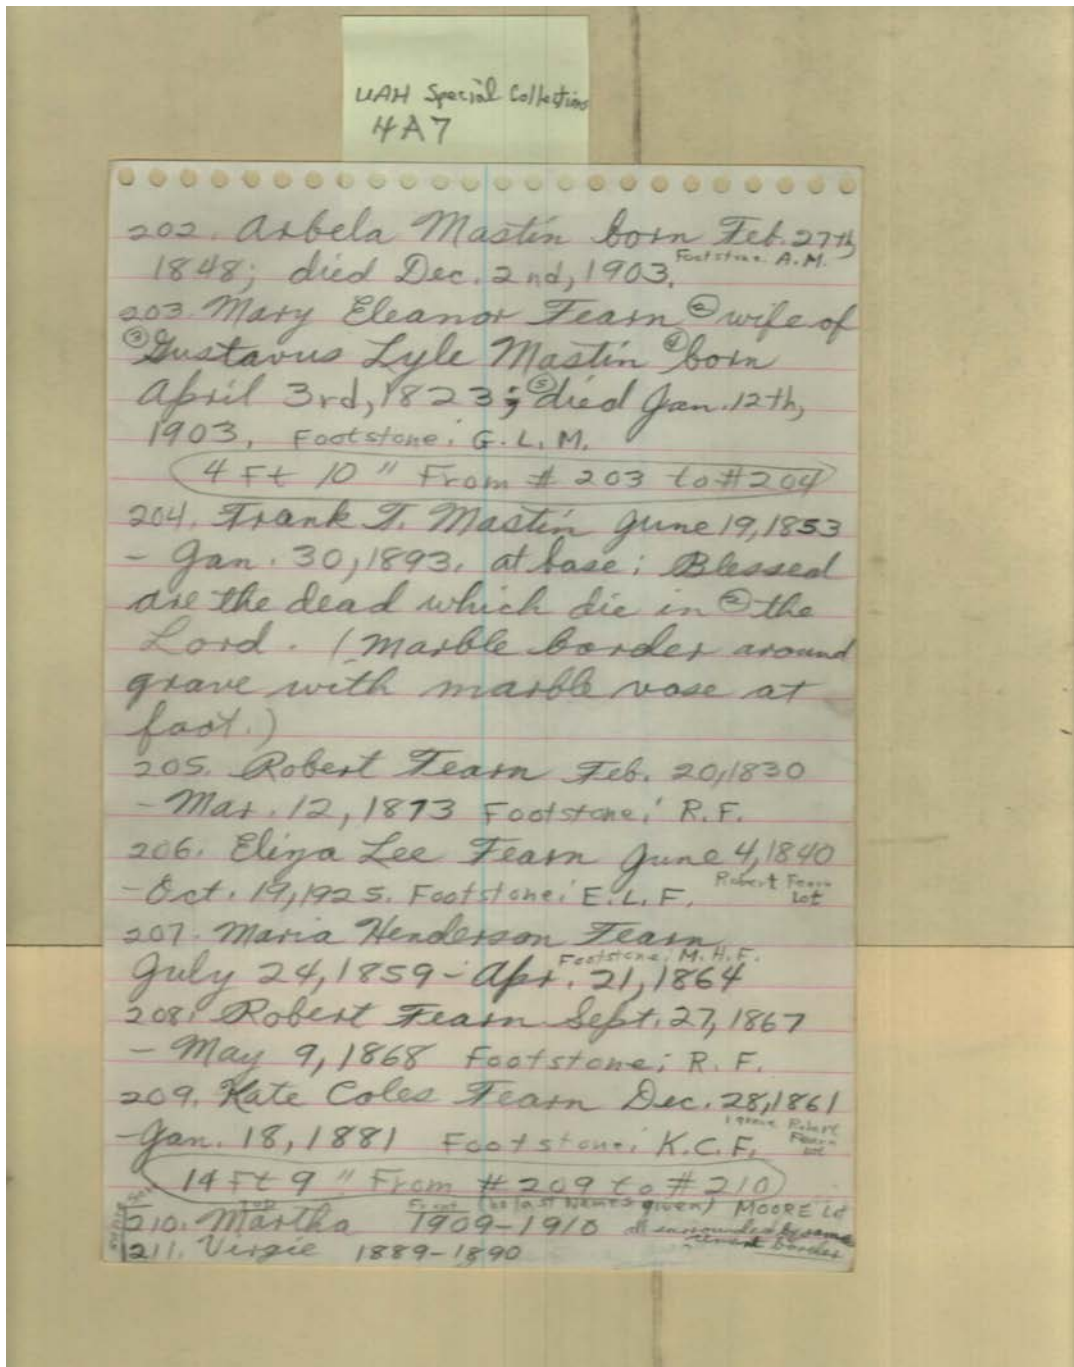 UAH Special Collections
4A7
202. Arbela Mastin born Feb. 27th,
Footstone: A.M.
1848; died Dec. 2nd, 1903.
203. Mary Eleanor Fearn ② wife of
③ Gustavus Lyle Mastin ④ born
April 3rd, 1823; ⑤ died Jan. 12th,
1903, Footstone: G.L.M.
4 Ft 10" From # 203 to # 204
204. Frank T. Mastin June 19, 1853
- Jan. 30, 1893. at base: Blessed
are the dead which die in ② the
Lord. (Marble border around
grave with marble vase at
foot.)
205. Robert Fearn Feb. 20, 1830
- Mar. 12, 1873 Footstone: R.F.
206. Eliza Lee Fearn June 4, 1840
Robert Fearn
- Oct. 19, 1925. Footstone: E.L.F. Lot
207. Maria Henderson Fearn
Footstone: M.H.F.
July 24, 1859 - Apr. 21, 1864
208. Robert Fearn Sept. 27, 1867
- May 9, 1868 Footstone: R. F.
209. Kate Coles Fearn Dec. 28, 1861
grave Robert
Fearn
- Jan. 18, 1881 Footstone: K.C.F. lot
14 Ft 9" From # 209 to # 210
Top Front (no last names given) MOORE Lot
210. Martha 1909-1910 all surrounded by same
cement border
211. Virgie 1889-1890